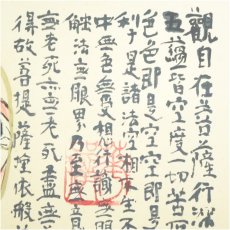 觀自在菩薩行深
五蘊皆空度一切苦厄
色色即是空空即是
利子是諸法空相不生不
中無色無受想行識無
觸法無眼界乃至無意
無老死亦無老死盡無苦
得故菩提薩埵依般